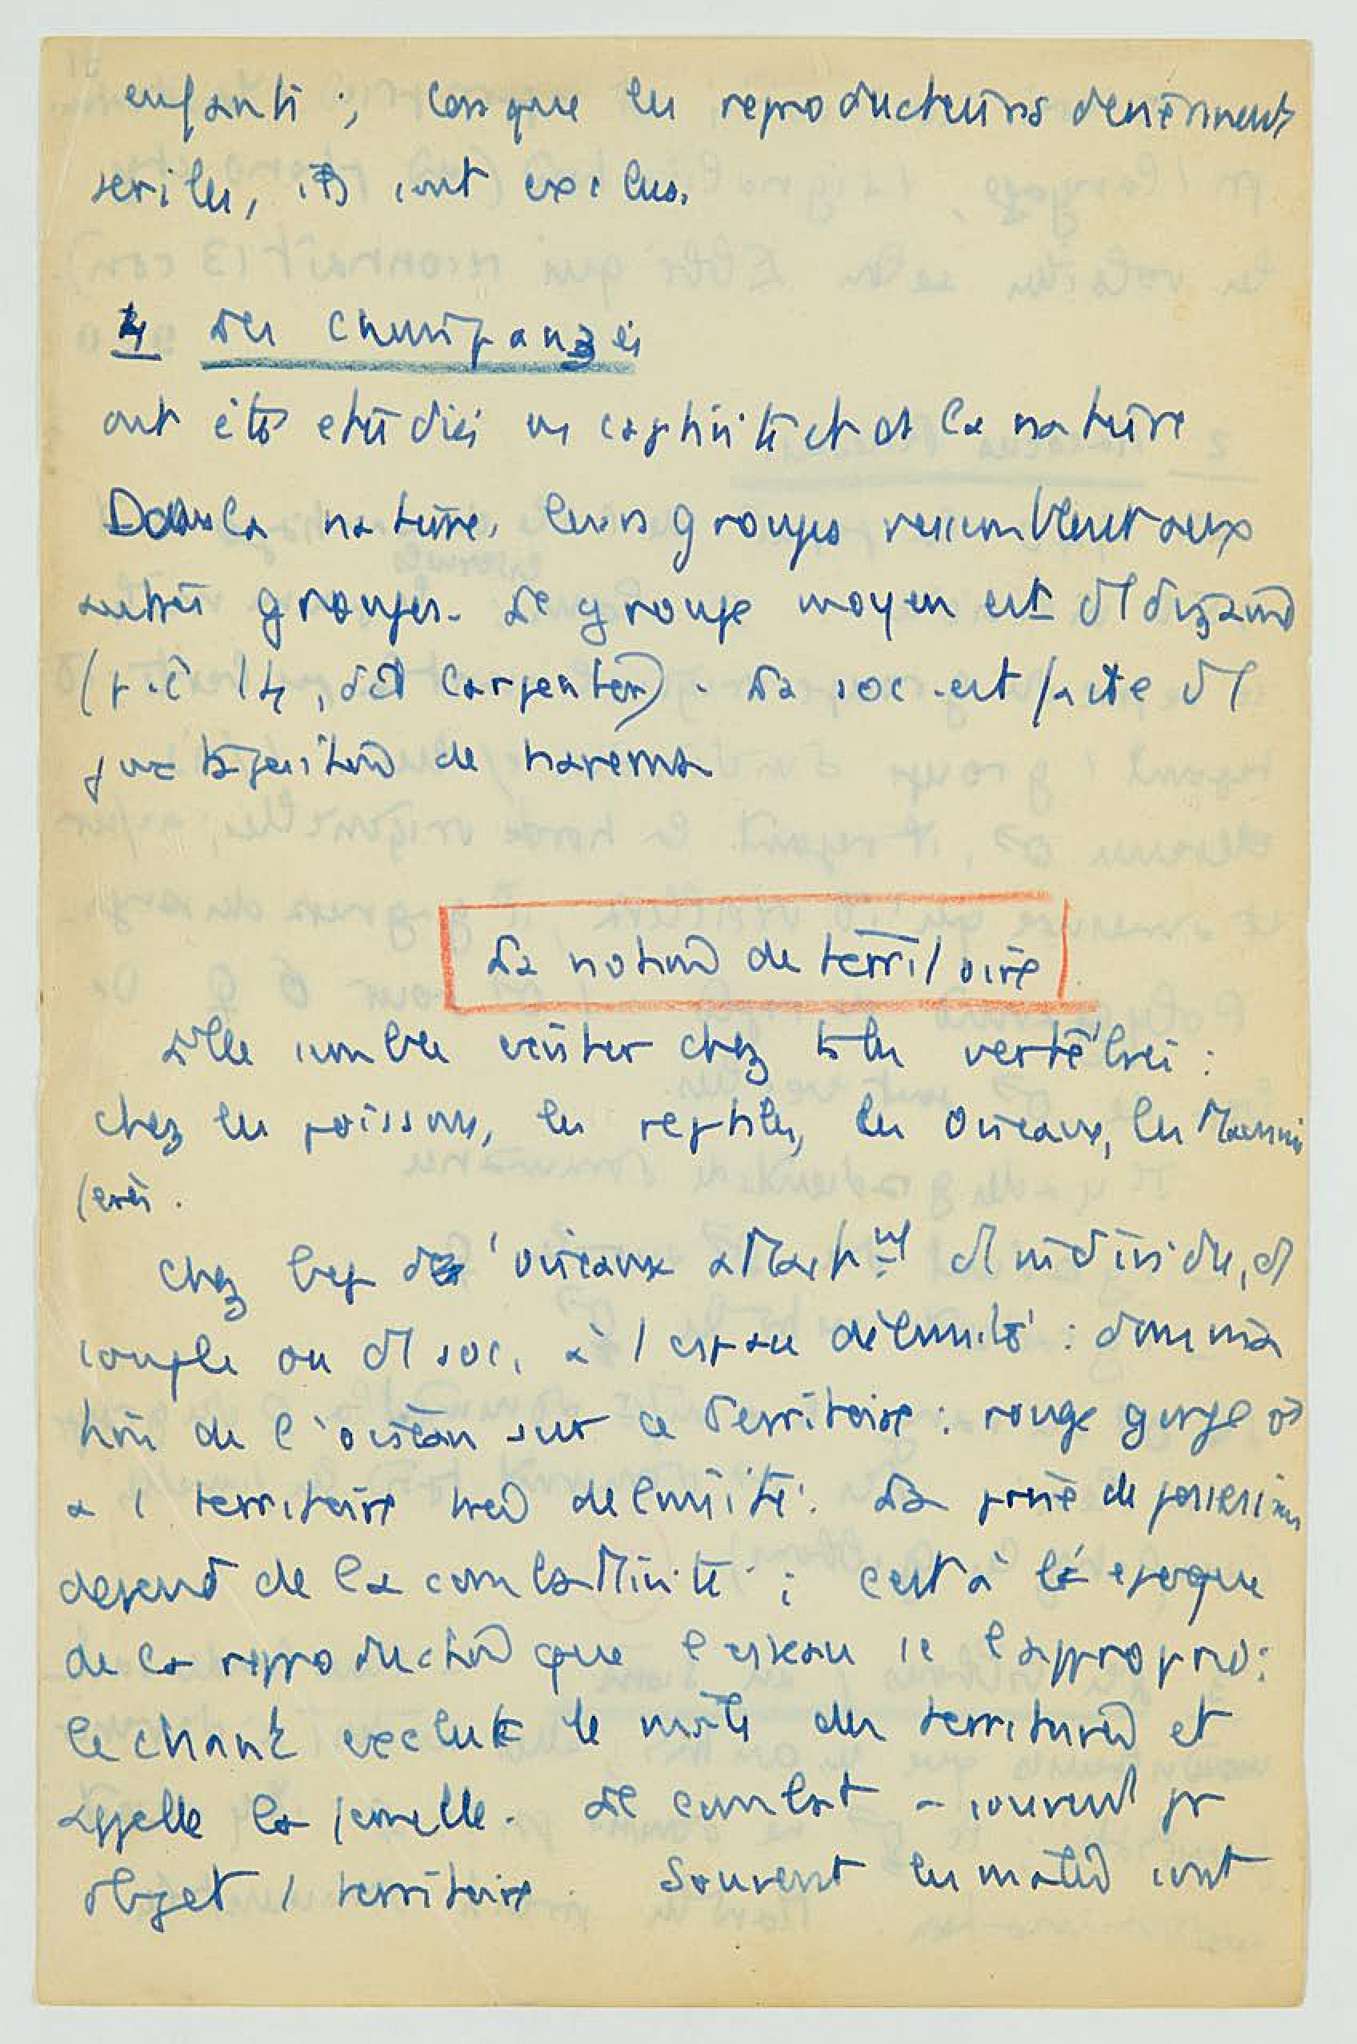 enfants ; lorsque les reproducteurs deviennent
steriles, ils sont exclus.
4 Les Chimpanzés
ont été etudiés en captivité et ds la nature
Dans la nature, leurs groupes ressemblent aux
autres groupes. Le groupe moyen est d'1 dizaine
(p. ê 14, dit Carpenter). La soc. est faite d'1
juxtaposition de harems
La notion de territoire
Elle semble exister chez ts les vertébrés :
chez les poissons, les reptiles, les Oiseaux, les Mammi
fères.
Chez bcp d'oiseaux à d'individu, d
couple ou d'1 soc. a 1 espace délimité : domina
tion de l'oiseau sur ce Territoire : rouge gorge ♂
a 1 territoire très délimité. La prise de possession
depend de la combattivité ; c'est à l'époque
de la reproduction que l'oiseau se l'approprie :
le chant exclut le mâle des territoires et
appelle la femelle. Le combat a souvent pr
objet 1 territoire. Souvent les mâles sont